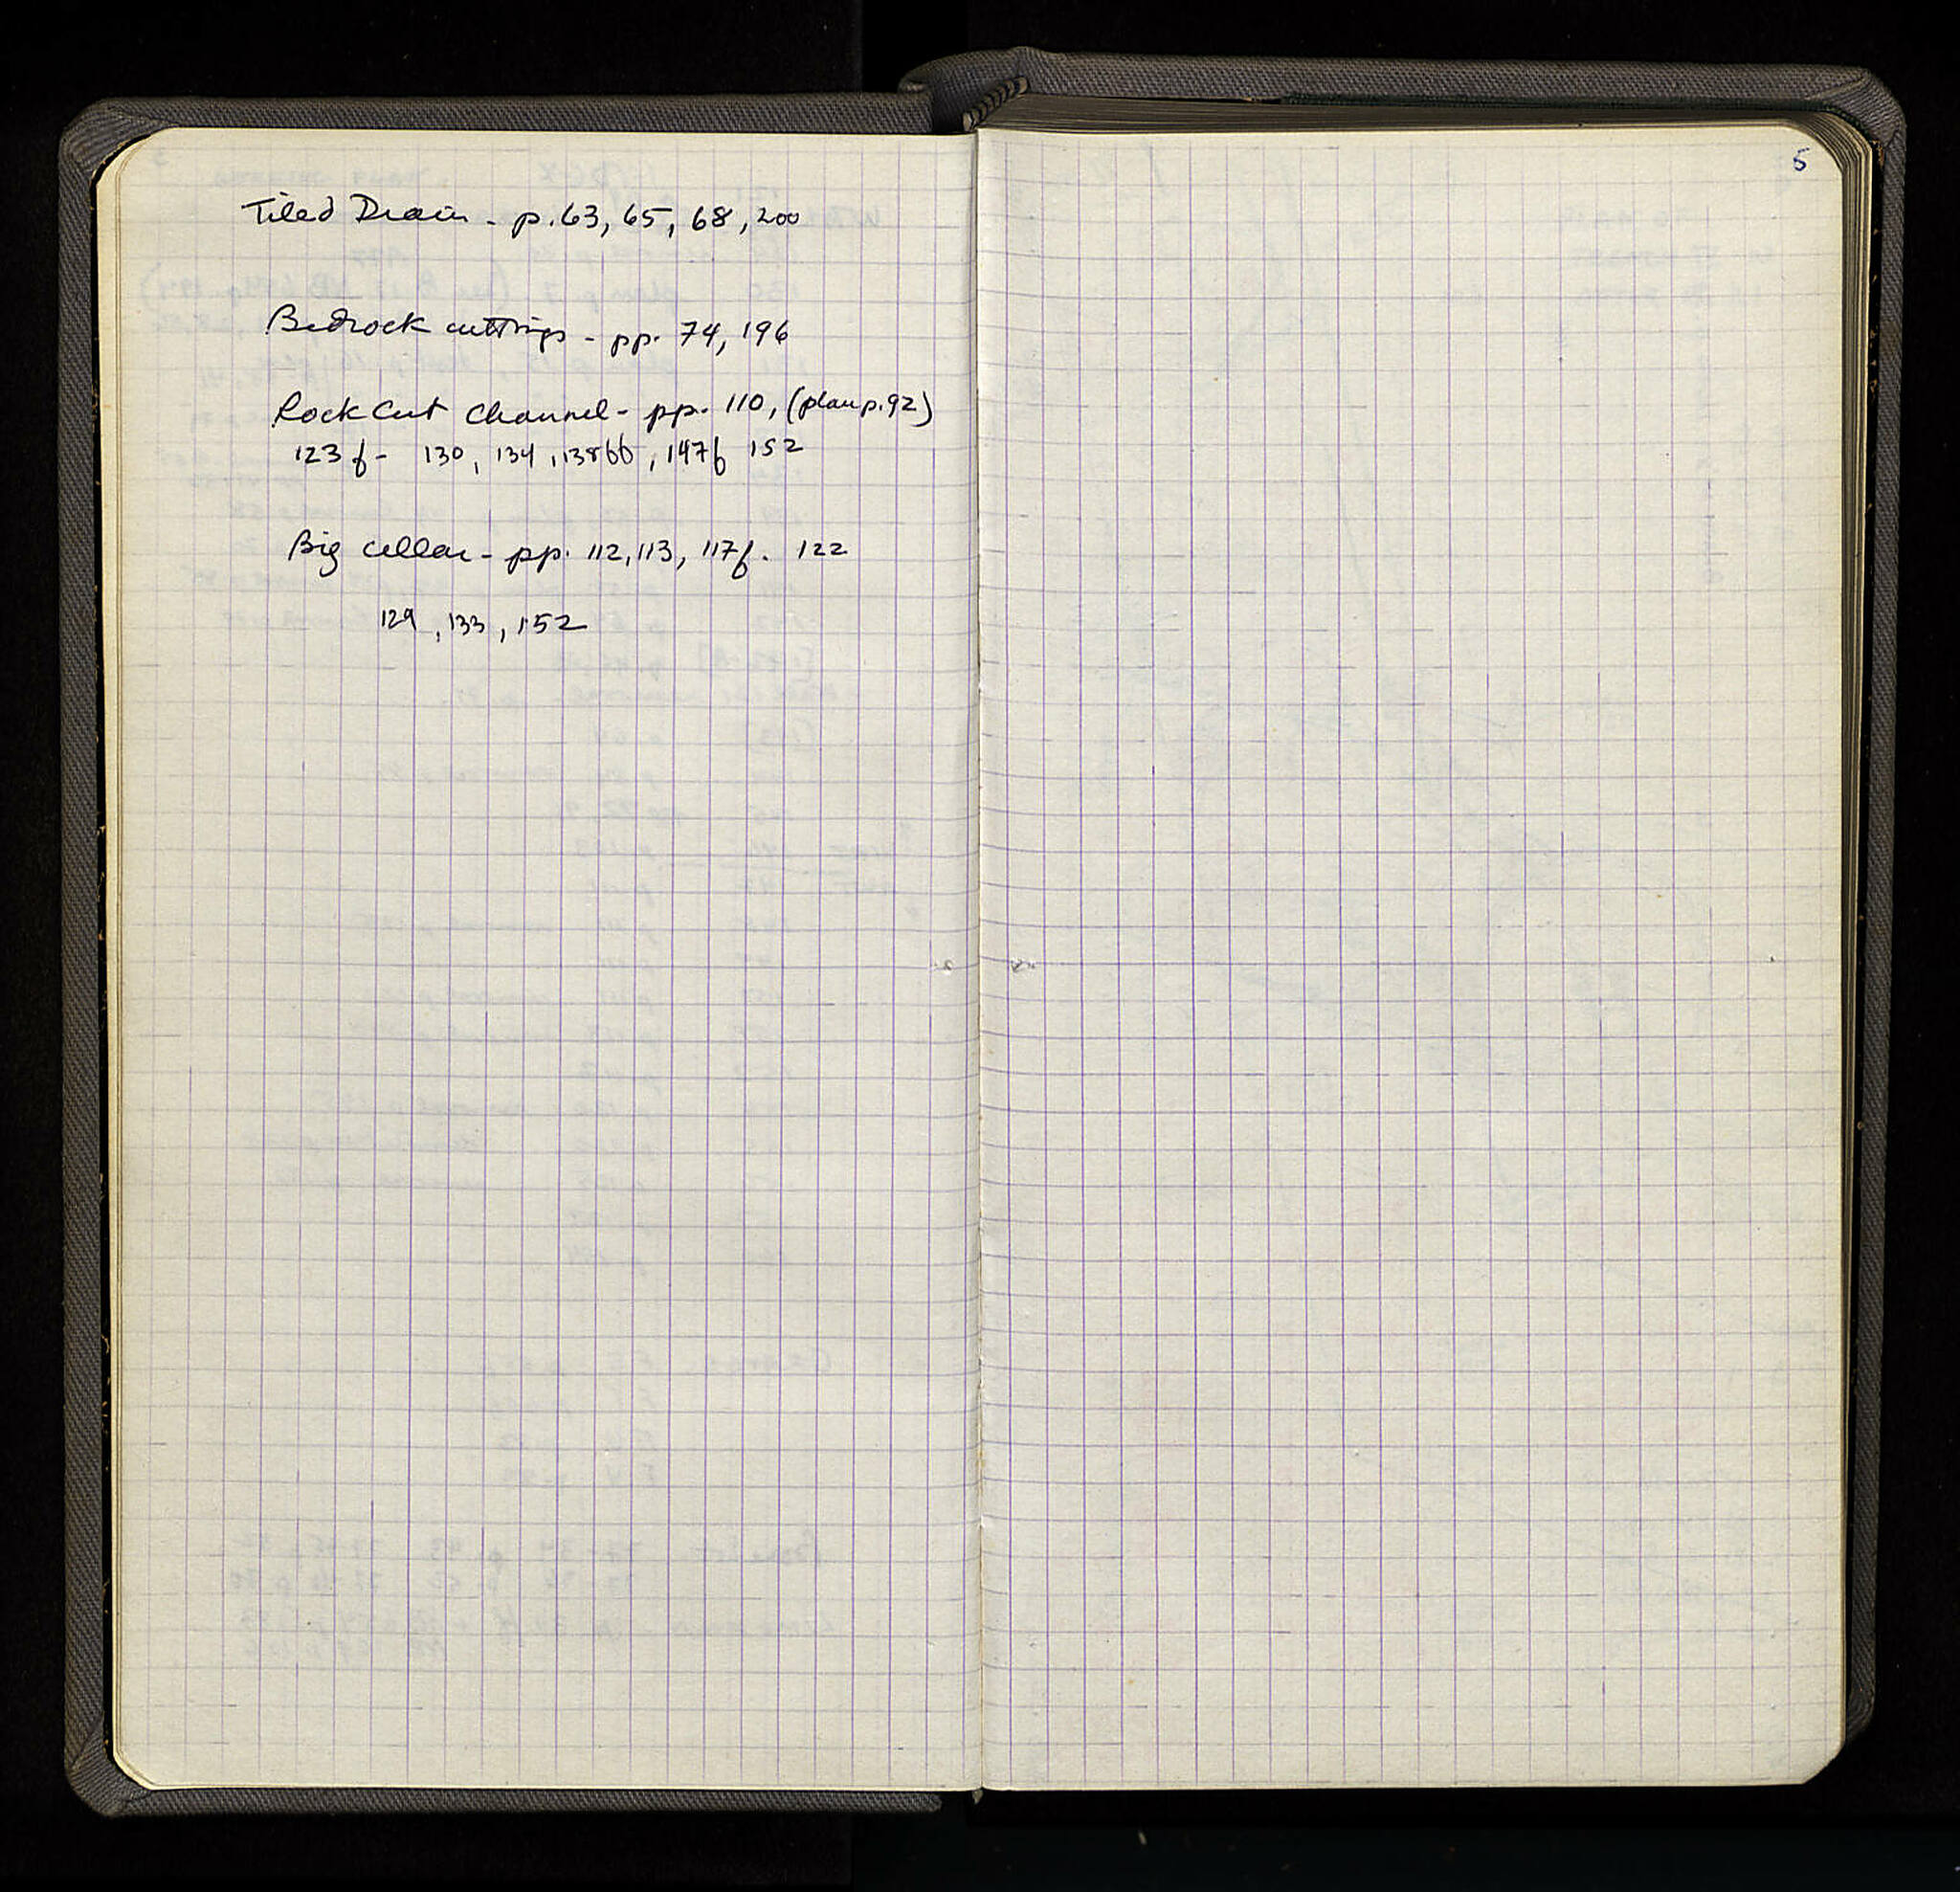 Tiled Drain - p. 63, 65, 68, 200
Bedrock cuttings - pp. 74, 196
Rock Cut Channel - pp. 110, (plan p. 92)
123 f - 130, 134, 138ff, 147f 152
Big cellar - pp. 112, 113, 117f. 122
129, 133, 152
5